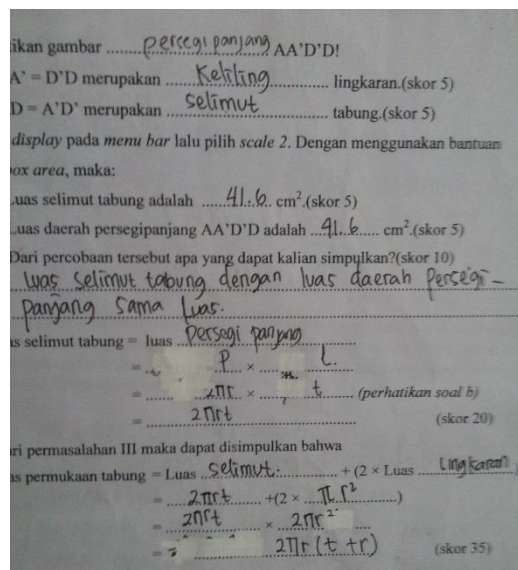 ikan gambar ........persegi panjang AA'D'D!
A' = D'D merupakan ......Keliling............ lingkaran.(skor 5)
D = A'D' merupakan ......selimut............ tabung.(skor 5)
display pada menu bar lalu pilih scale 2. Dengan menggunakan bantuan
ox area, maka:
Luas selimut tabung adalah ......41.6.. cm².(skor 5)
Luas daerah persegipanjang AA'D'D adalah ...41.6..... cm².(skor 5)
Dari percobaan tersebut apa yang dapat kalian simpulkan?(skor 10)
luas selimut tabung dengan luas daerah Persegi-
panjang sama luas.
as selimut tabung = luas ..Persegi panjang
= P × L.
= 2πr × t (perhatikan soal b)
= 2πrt (skor 20)
ri permasalahan III maka dapat disimpulkan bahwa
as permukaan tabung = Luas ..selimut............. + (2 × Luas ...Lingkaran
= .....2πrt........+(2 × ...π r²..........)
= 2πrt × 2πr²
= 2πr (t + r) (skor 35)